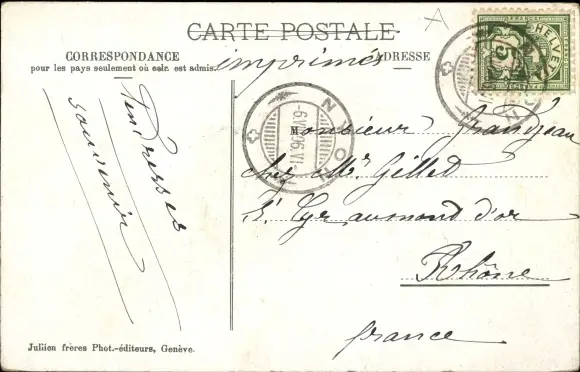 CARTE POSTALE
imprimés
CORRESPONDANCE
pour les pays seulement où cela est admis.
ADRESSE
HELVETIA
5
NYON
NYON
Tendresses
souvenir
Monsieur Grandjean
chez Mr Gillet
St Cyr au mont d'or
Rhône
france
Jullien frères Phot.-éditeurs, Genève.